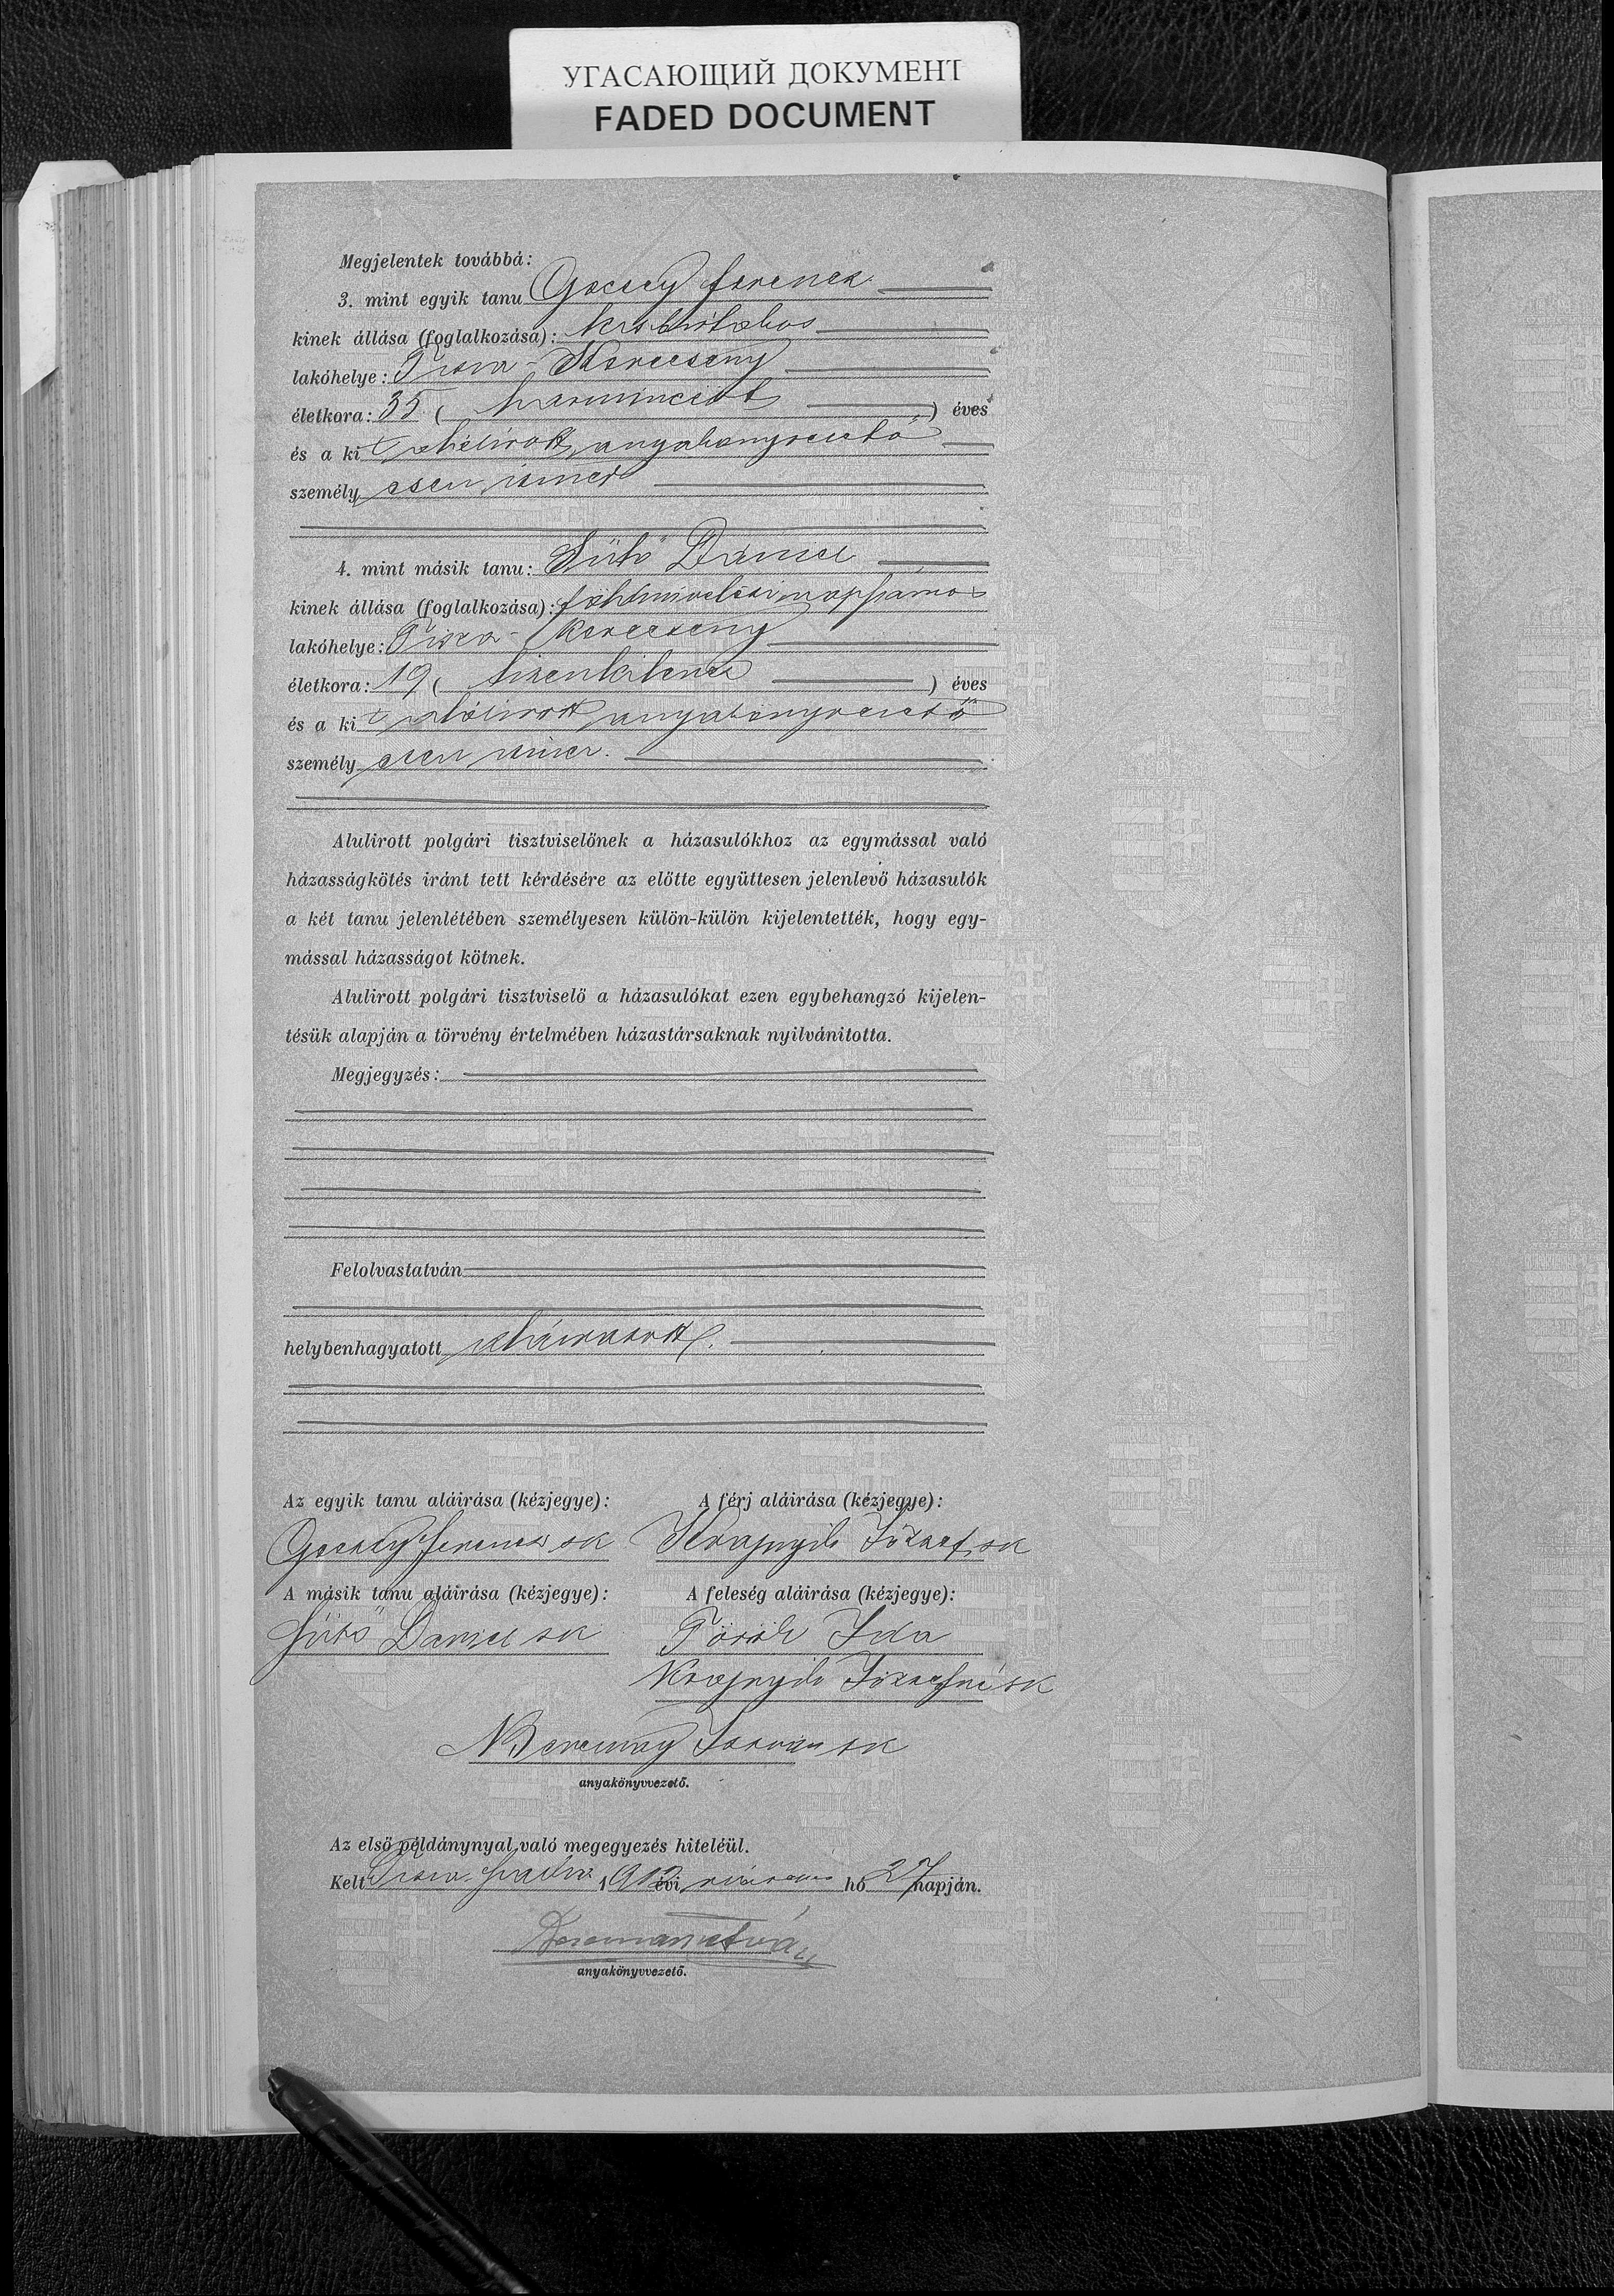 УГАСАЮЩИЙ ДОКУМЕНТ
FADED DOCUMENT
Megjelentek továbbá:
3. mint egyik tanu Gecsey Ferencz
kinek állása (foglalkozása): kisbirtokos
lakóhelye: Tisza-Kerecseny
életkora: 35 (harmincöt) éves
és a kit alólirott anyakönyvvezető
személyesen ismer
4. mint másik tanu: Sütő Dániel
kinek állása (foglalkozása): földmivelési napszámos
lakóhelye: Tisza-Kerecseny
életkora: 19 (tizenkilencz) éves
és a kit alólirott anyakönyvvezető
személyesen ismer.
Alulirott polgári tisztviselőnek a házasulókhoz az egymással való
házasságkötés iránt tett kérdésére az előtte együttesen jelenlevő házasulók
a két tanu jelenlétében személyesen külön-külön kijelentették, hogy egy-
mással házasságot kötnek.
Alulirott polgári tisztviselő a házasulókat ezen egybehangzó kijelen-
tésük alapján a törvény értelmében házastársaknak nyilvánitotta.
Megjegyzés:
Felolvastatván
helybenhagyatott aláiratott.
Az egyik tanu aláirása (kézjegye): A férj aláirása (kézjegye):
Gecsey Ferencz sk Krajnyik József sk
A másik tanu aláirása (kézjegye): A feleség aláirása (kézjegye):
Sütő Dániel sk Török Ida
Krajnyik Józsefné sk
István sk
anyakönyvvezető.
Az első példánynyal való megegyezés hiteléül.
Kelt Tisza 1912 évi hó 27 napján.
István
anyakönyvvezető.